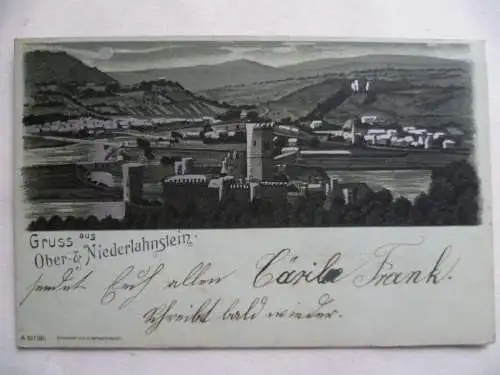 Gruss aus
Ober- & Niederlahnstein.
sendet Euch allen Cäzilie Frank.
Schreibt bald wieder.